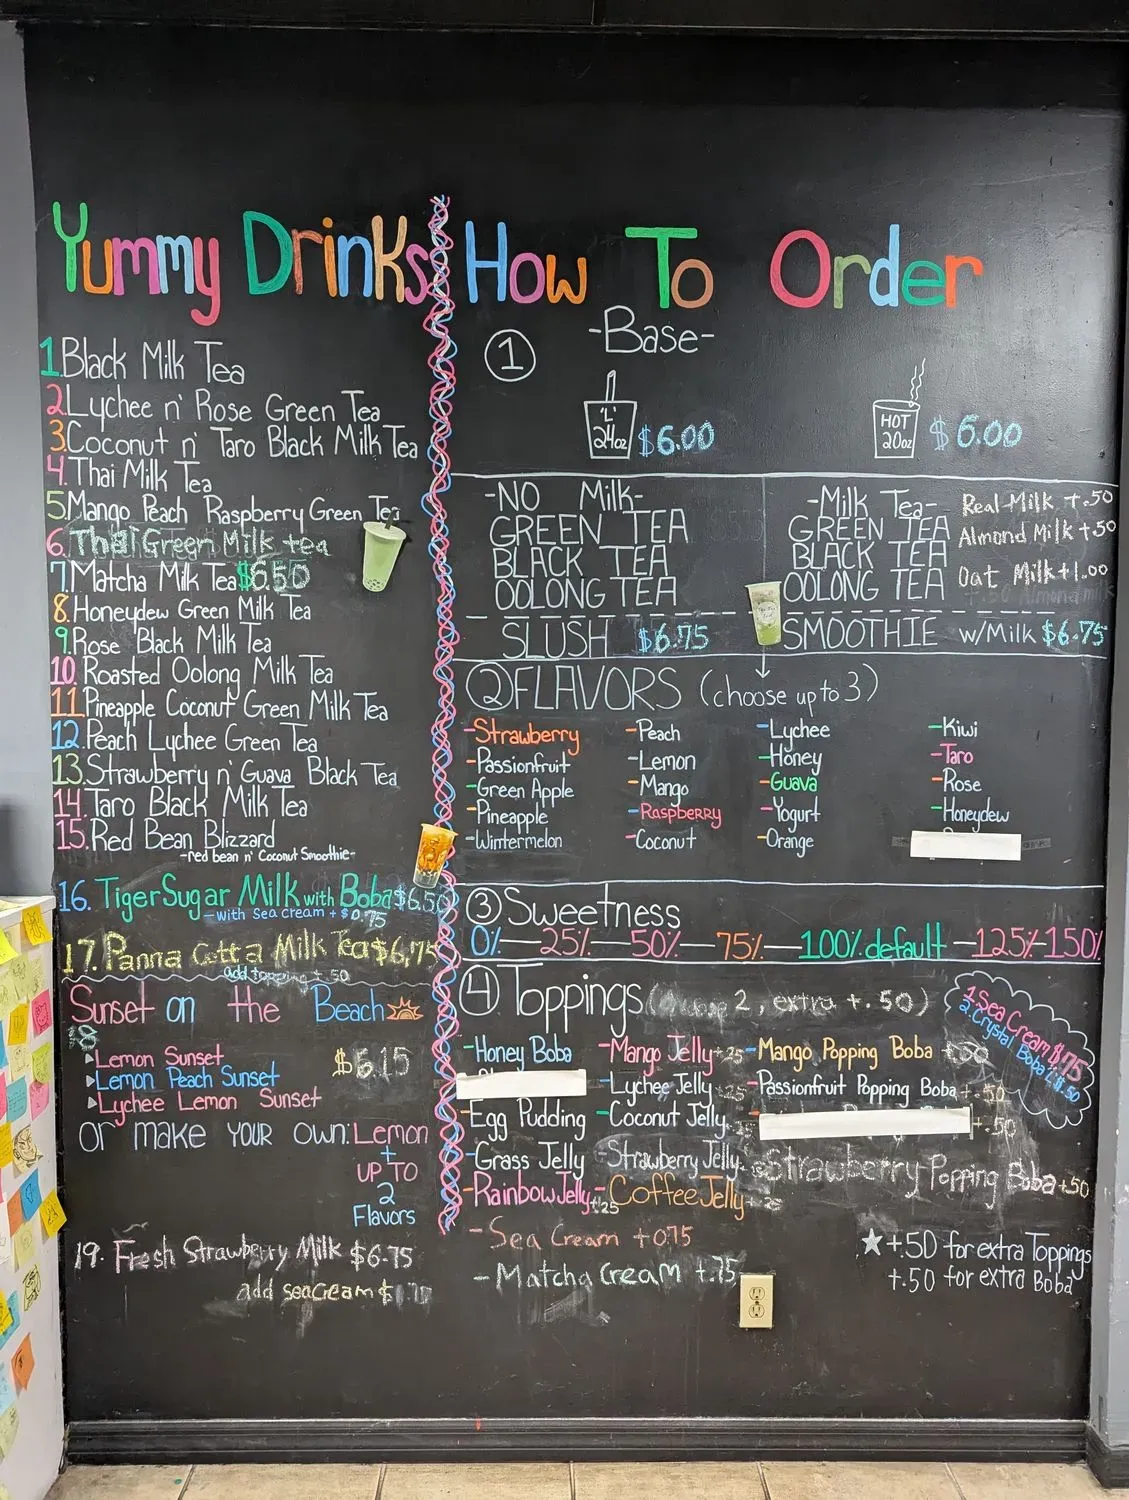 Yummy Drinks
1. Black Milk Tea
2. Lychee n' Rose Green Tea
3. Coconut n' Taro Black Milk Tea
4. Thai Milk Tea
5. Mango Peach Raspberry Green Tea
6. Thai Green Milk tea
7. Matcha Milk Tea $6.50
8. Honeydew Green Milk Tea
9. Rose Black Milk Tea
10 Roasted Oolong Milk Tea
11. Pineapple Coconut Green Milk Tea
12. Peach Lychee Green Tea
13. Strawberry n' Guava Black Tea
14. Taro Black Milk Tea
15. Red Bean Blizzard
-red bean n' Coconut Smoothie-
16. Tiger Sugar Milk with Boba $6.50
-with Sea cream + $0.75
17. Panna Cotta Milk Tea $6,75
add topping +.50
Sunset on the Beach
$8
Lemon Sunset
$6.15
Lemon Peach Sunset
Lychee Lemon Sunset
or make your own: Lemon
+
UP TO
2
Flavors
19. Fresh Strawberry Milk $6.75
add seacream $
How To Order
1 -Base-
'L'
24oz
$6.00
HOT
20oz
$6.00
-NO Milk-
GREEN TEA
BLACK TEA
OOLONG TEA
-Milk Tea-
GREEN TEA
BLACK TEA
OOLONG TEA
Real Milk +.50
Almond Milk +50
Oat Milk +1.00
SLUSH $6.75
SMOOTHIE w/Milk $6.75
2 FLAVORS (choose up to 3)
-Strawberry
-Passionfruit
-Green Apple
-Pineapple
-Wintermelon
-Peach
-Lemon
-Mango
-Raspberry
-Coconut
-Lychee
-Honey
-Guava
-Yogurt
-Orange
-Kiwi
-Taro
-Rose
-Honeydew
3 Sweetness
0%—25%—50%—75%—100% default—125%—150%
4 Toppings ( 2, extra +.50)
1. Sea Cream $.75
2. Crystal Boba $.50
-Honey Boba
-Egg Pudding
-Grass Jelly
-Rainbow Jelly +.25
-Sea Cream +075
-Matcha Cream +.75
-Mango Jelly +.25
-Lychee Jelly +.25
-Coconut Jelly
-Strawberry Jelly
-Coffee Jelly
-Mango Popping Boba +.50
-Passionfruit Popping Boba +.50
+.50
-Strawberry Popping Boba +50
★ +.50 for extra Toppings
+.50 for extra Boba